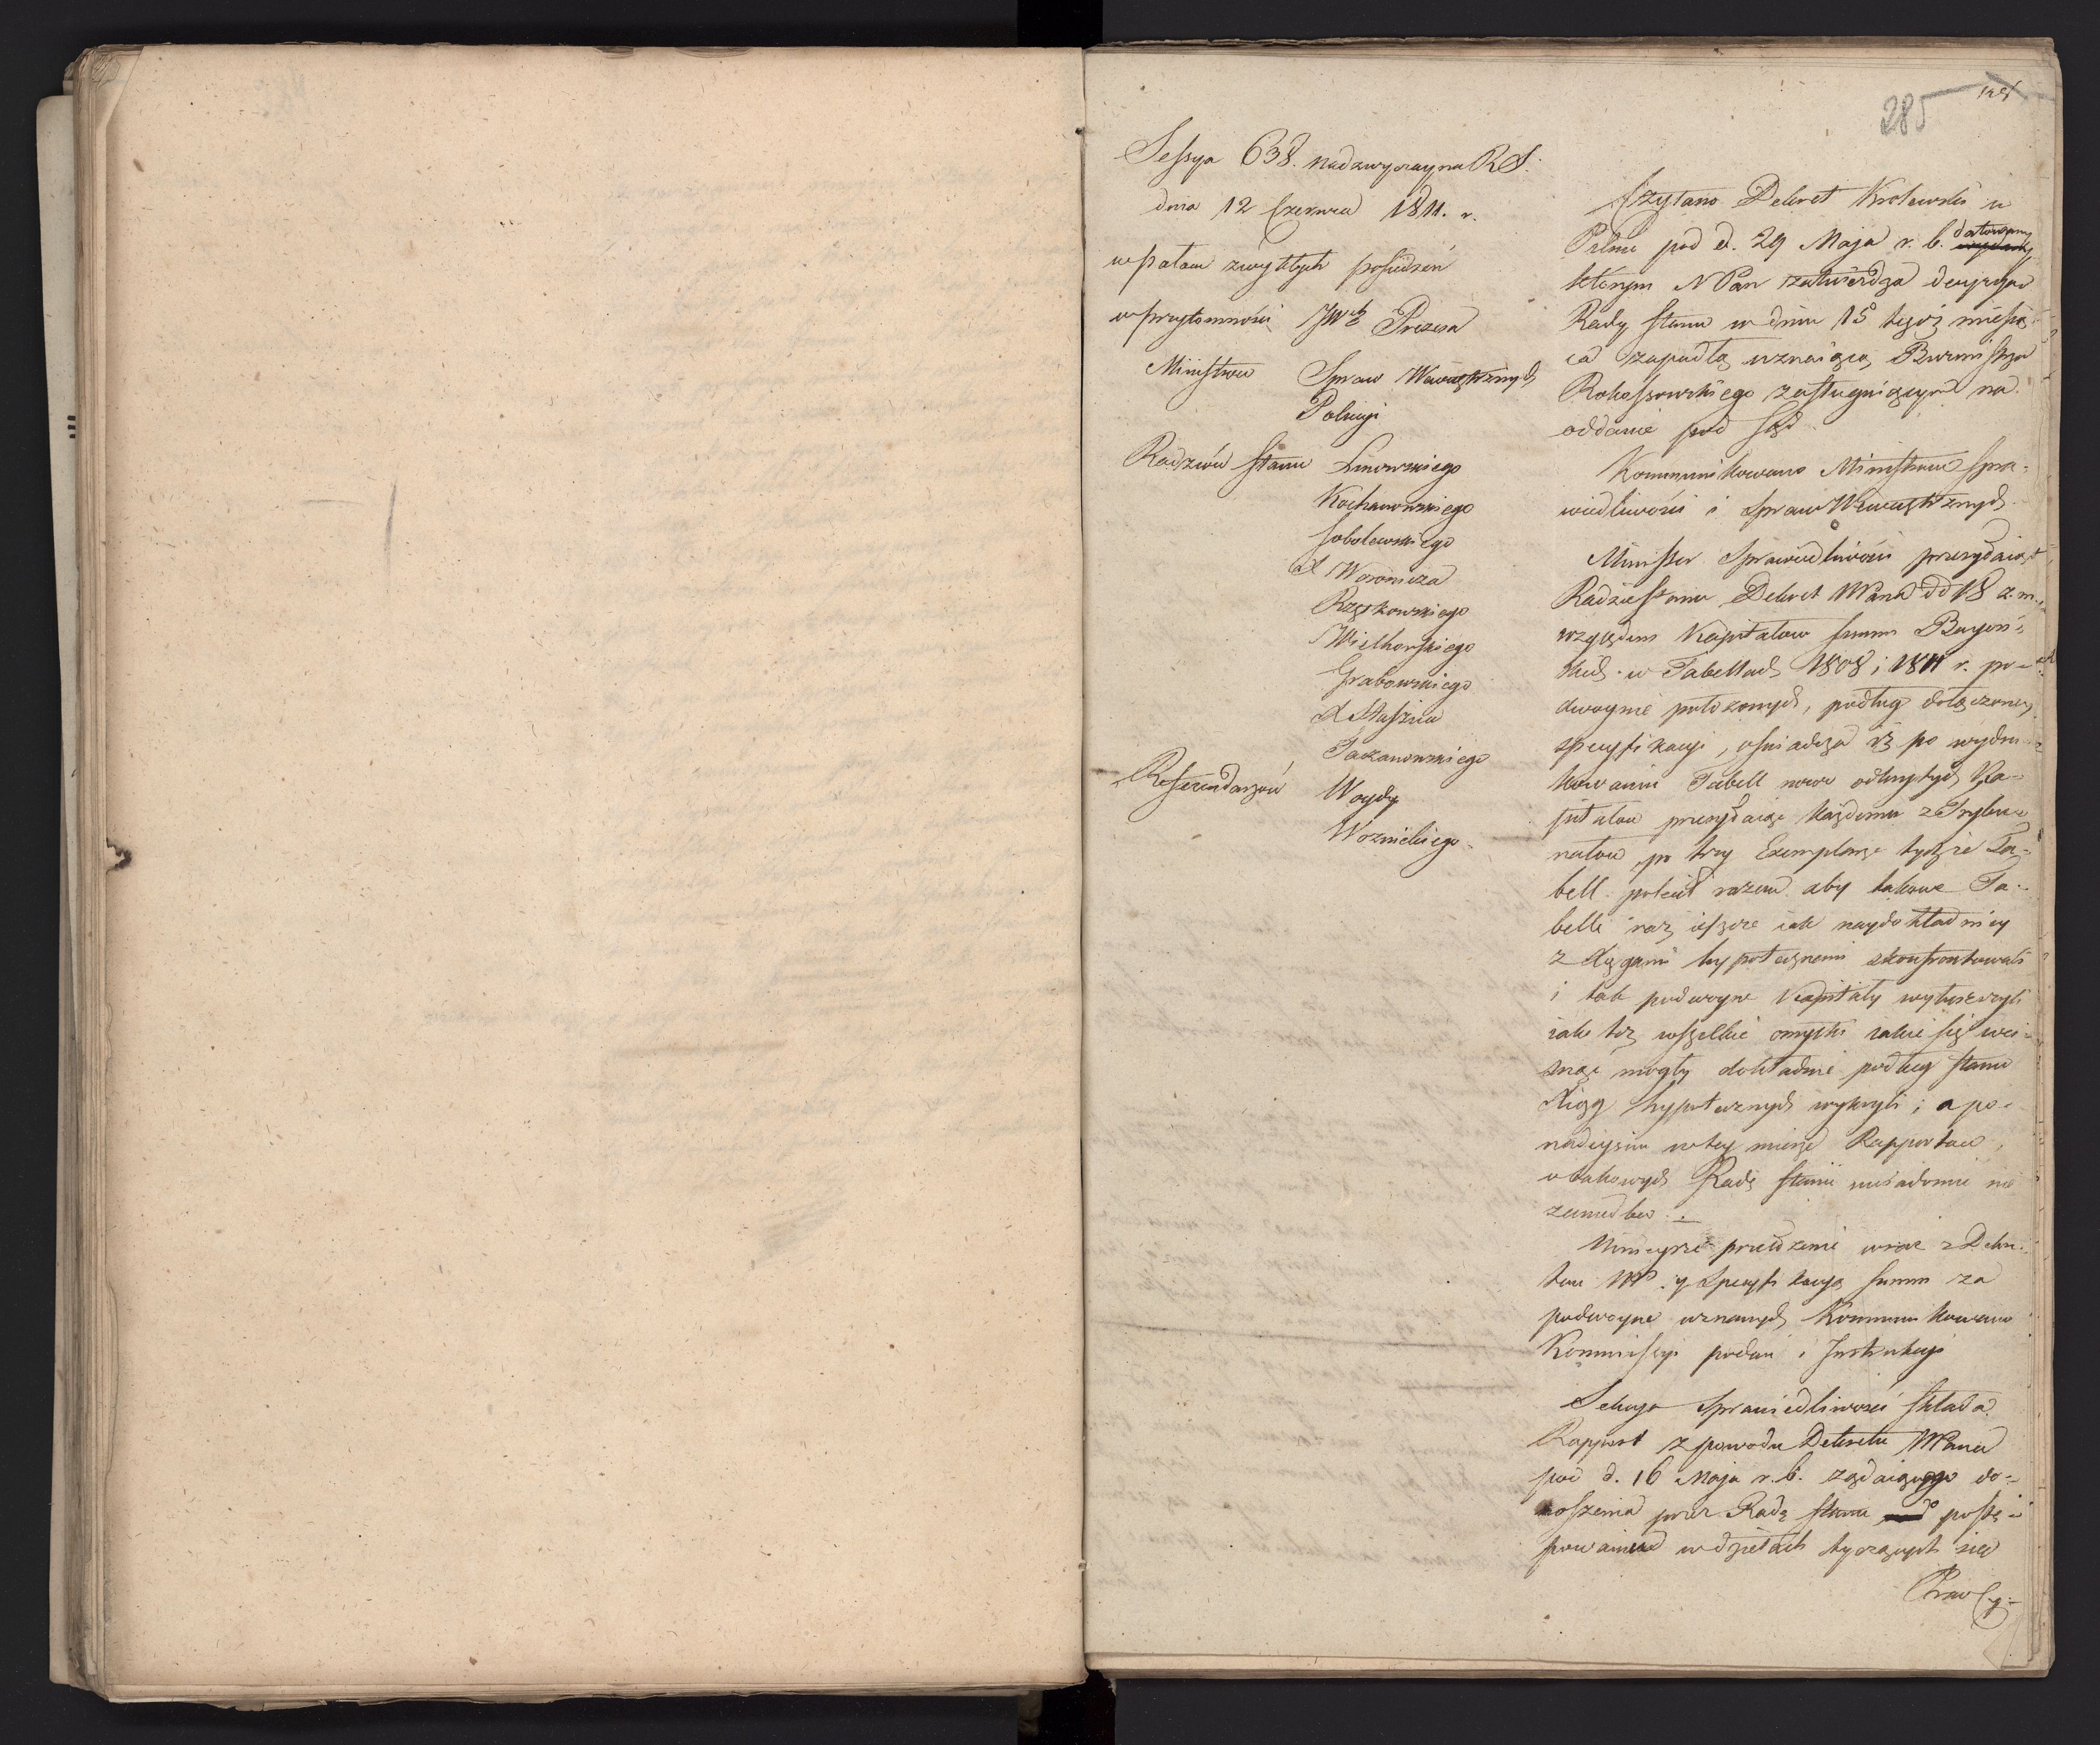 285
Sessya 638. nadzwyczayna R S.
dnia 12 Czerwca 1811. r.
w pałacu zwykłych posiedzeń
w przytomności JW Prezesa
Ministrów Spraw Wewnętrznych
Policyi
Radzców Stanu Linowskiego
Kochanowskiego
Sobolewskiego
X Woronicza
Rzętkowskiego
Wielhorskiego
Grabowskiego
X Staszica
Referendarzów Woydy
Woznickiego
Czytano Dekret Krolewski w
Pilnie pod d. 29 Maja r. b. datowany
którym N Pan zatwierdza decyzyą
Rady Stanu w dniu 15 tegoż miesią-
ca zapadłą uznaiącą Burmistrza
Rokossowskiego zasługuiącym na
oddanie pod Sąd
Kommunikowano Ministrom Spra-
wiedliwości i Spraw Wewnętrznych
Minister Sprawiedliwości przesyłaiąc
Radzie Stanu Dekret dd 18 z. m.
względem Kapitałow summ Bayoń-
skich w Tabellach 1808 i 1811 r. po-
dwoynie położonych, podług dołączoney
specyfikacyi, oświadcza iż po wydru-
kowaniu Tabell nowo odkrytych Ka-
pitałow przesyłaiąc każdemu z Trybu-
nałow po trzy Exemplarze tychże Ta-
bell polecił razem aby takowe Ta-
belle raz ieszcze iak naydokładniey
z Xięgami hypotecznemi skonfrontowali
i tak podwoyne Kapitały wytworzyli
iako też wszelkie omyłki iakie się wci-
snąć mogły dokładnie podług stanu
Xiąg hypotecznych wykryli; a po
nadeyściu w tey mierze Rapportow,
o takowych Radę Stanu uwiadomić nie
zaniedba.
Ninieysze przełożenie wraz z Dekre-
tem i Specyfikacyą summ za
podwoyne uznanych Kommunikowano
Kommissyi podań i Instrukcyi
Sekcya Sprawiedliwości składa
Rapport z powodu Dekretu
pod d. 16 Maja r. b. żądaiącego do-
noszenia przez Radę Stanu o postę-
powaniu w dziełach tyczących się
Praw Cy-